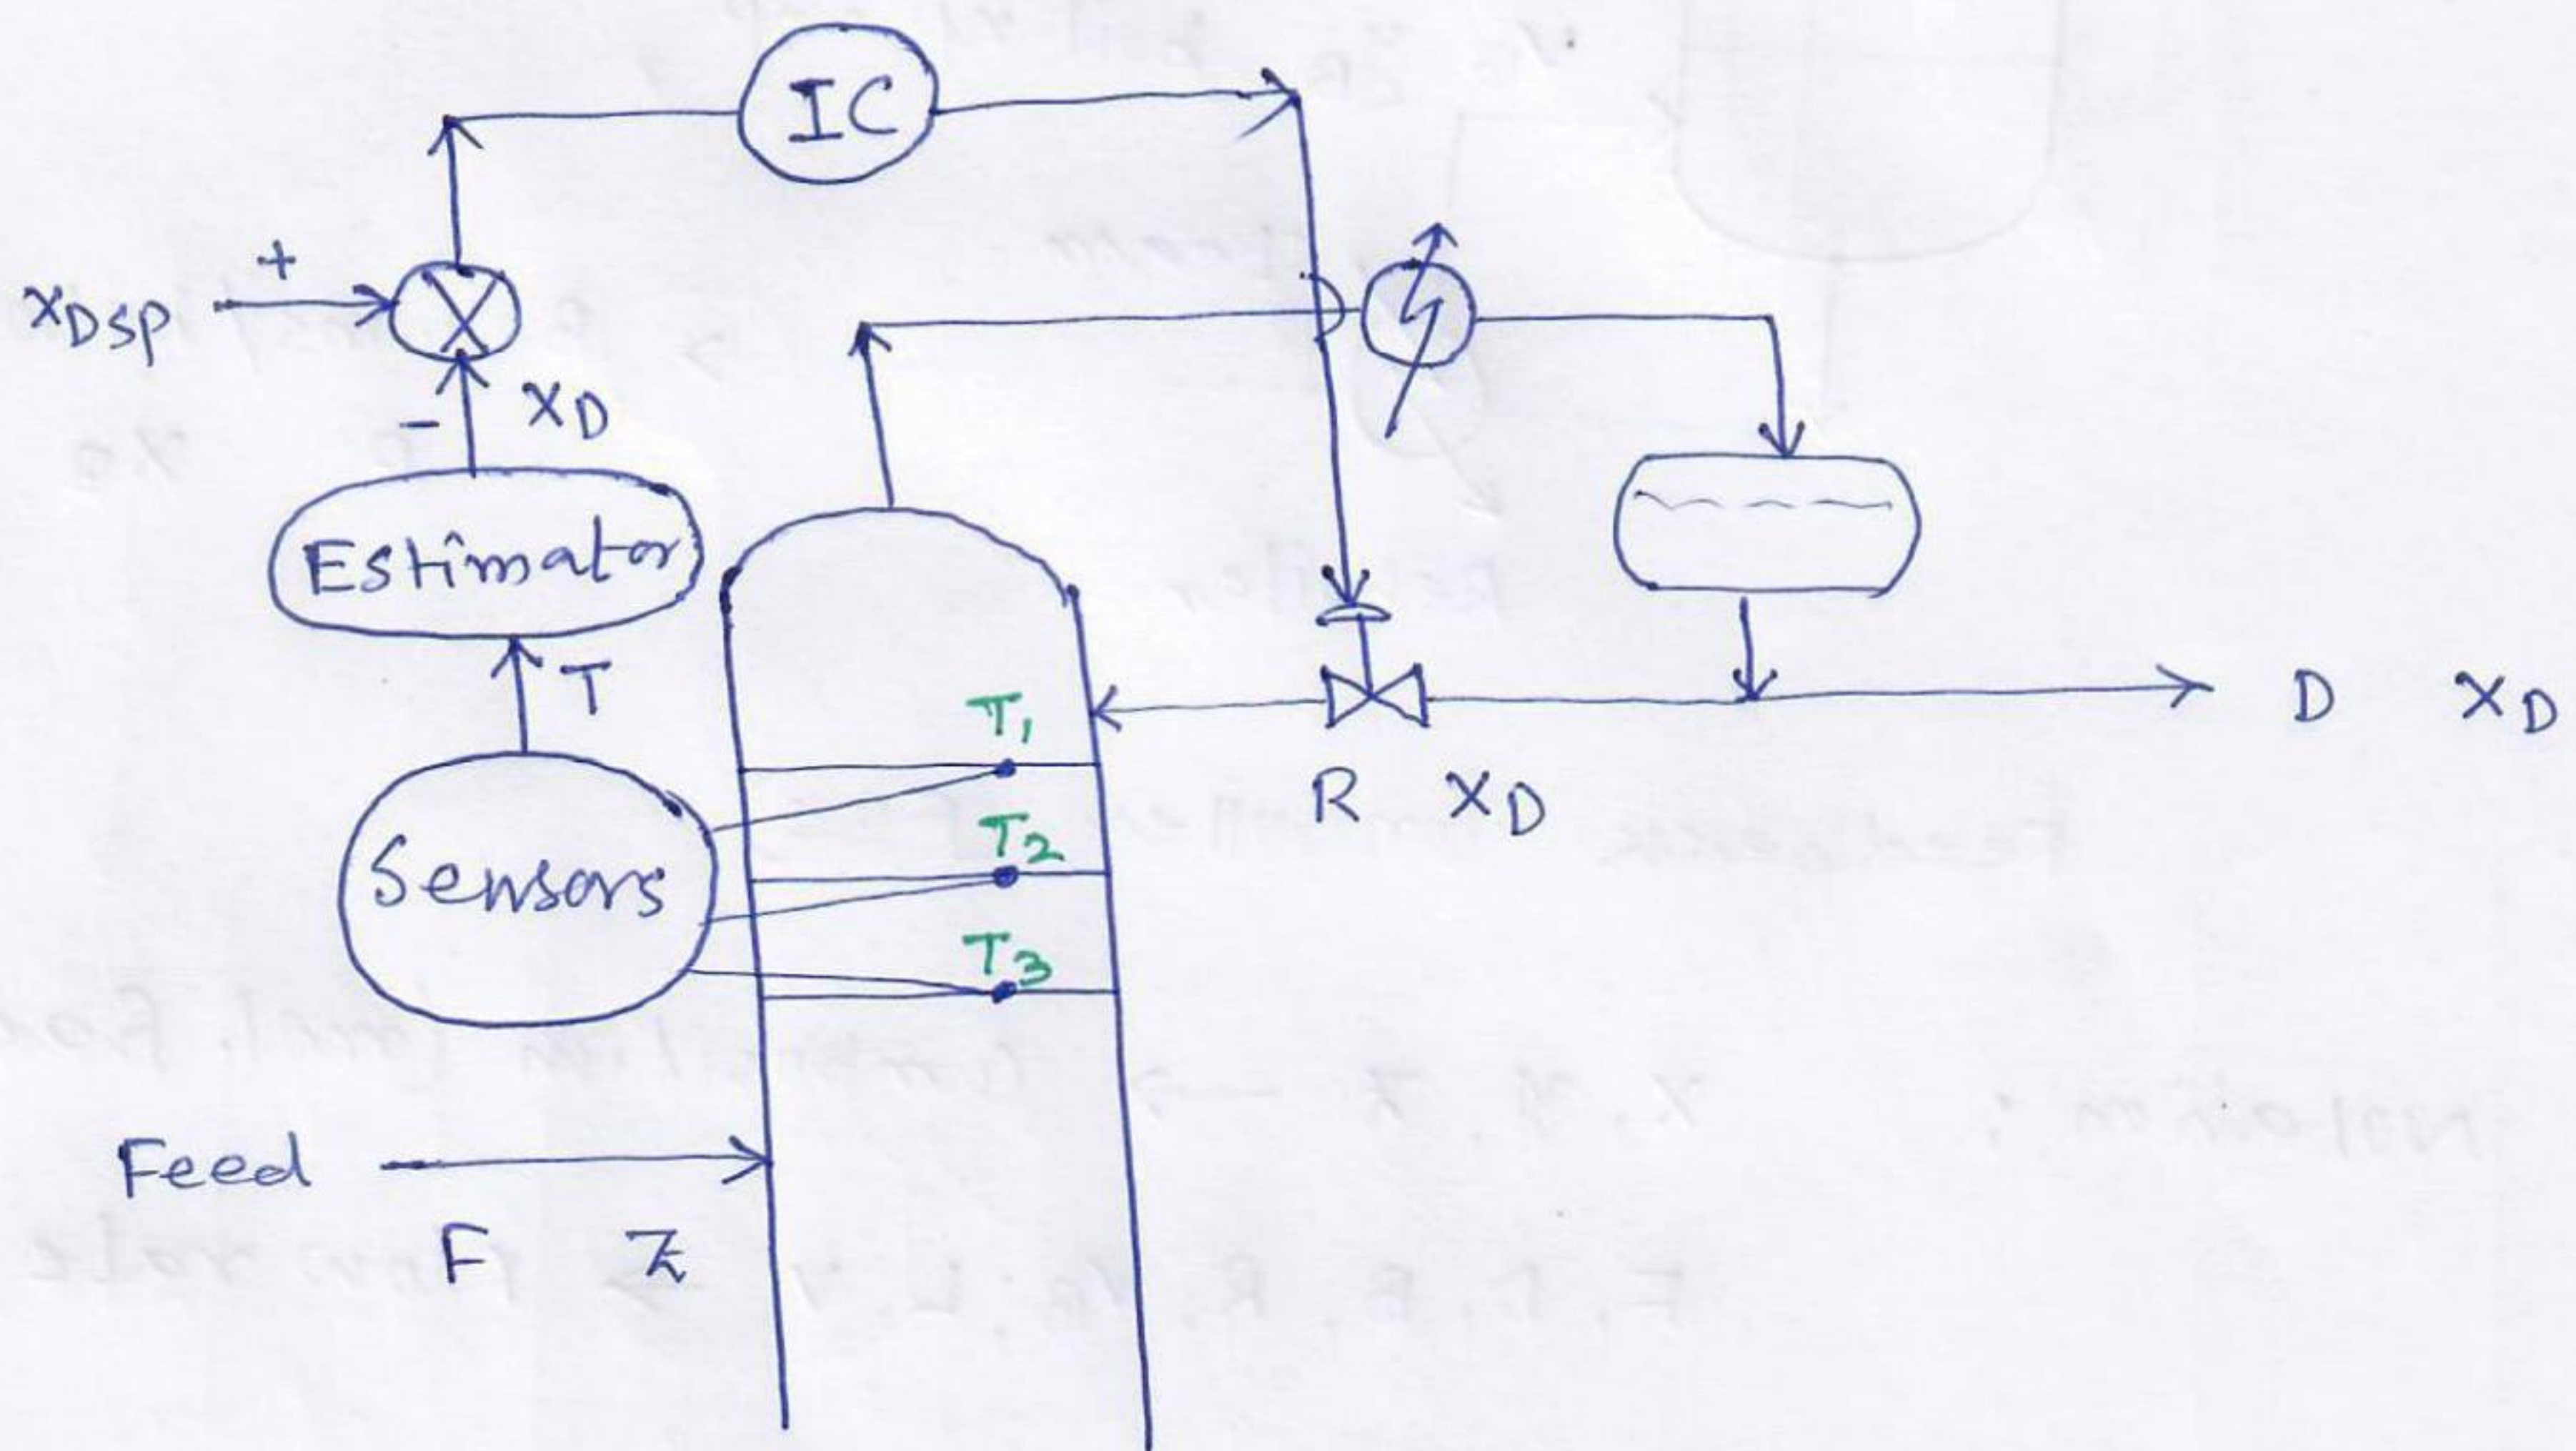 IC
+
XDSP
- XD
Estimator
T
Sensors
T1
T2
T3
R XD
D XD
Feed
F Z